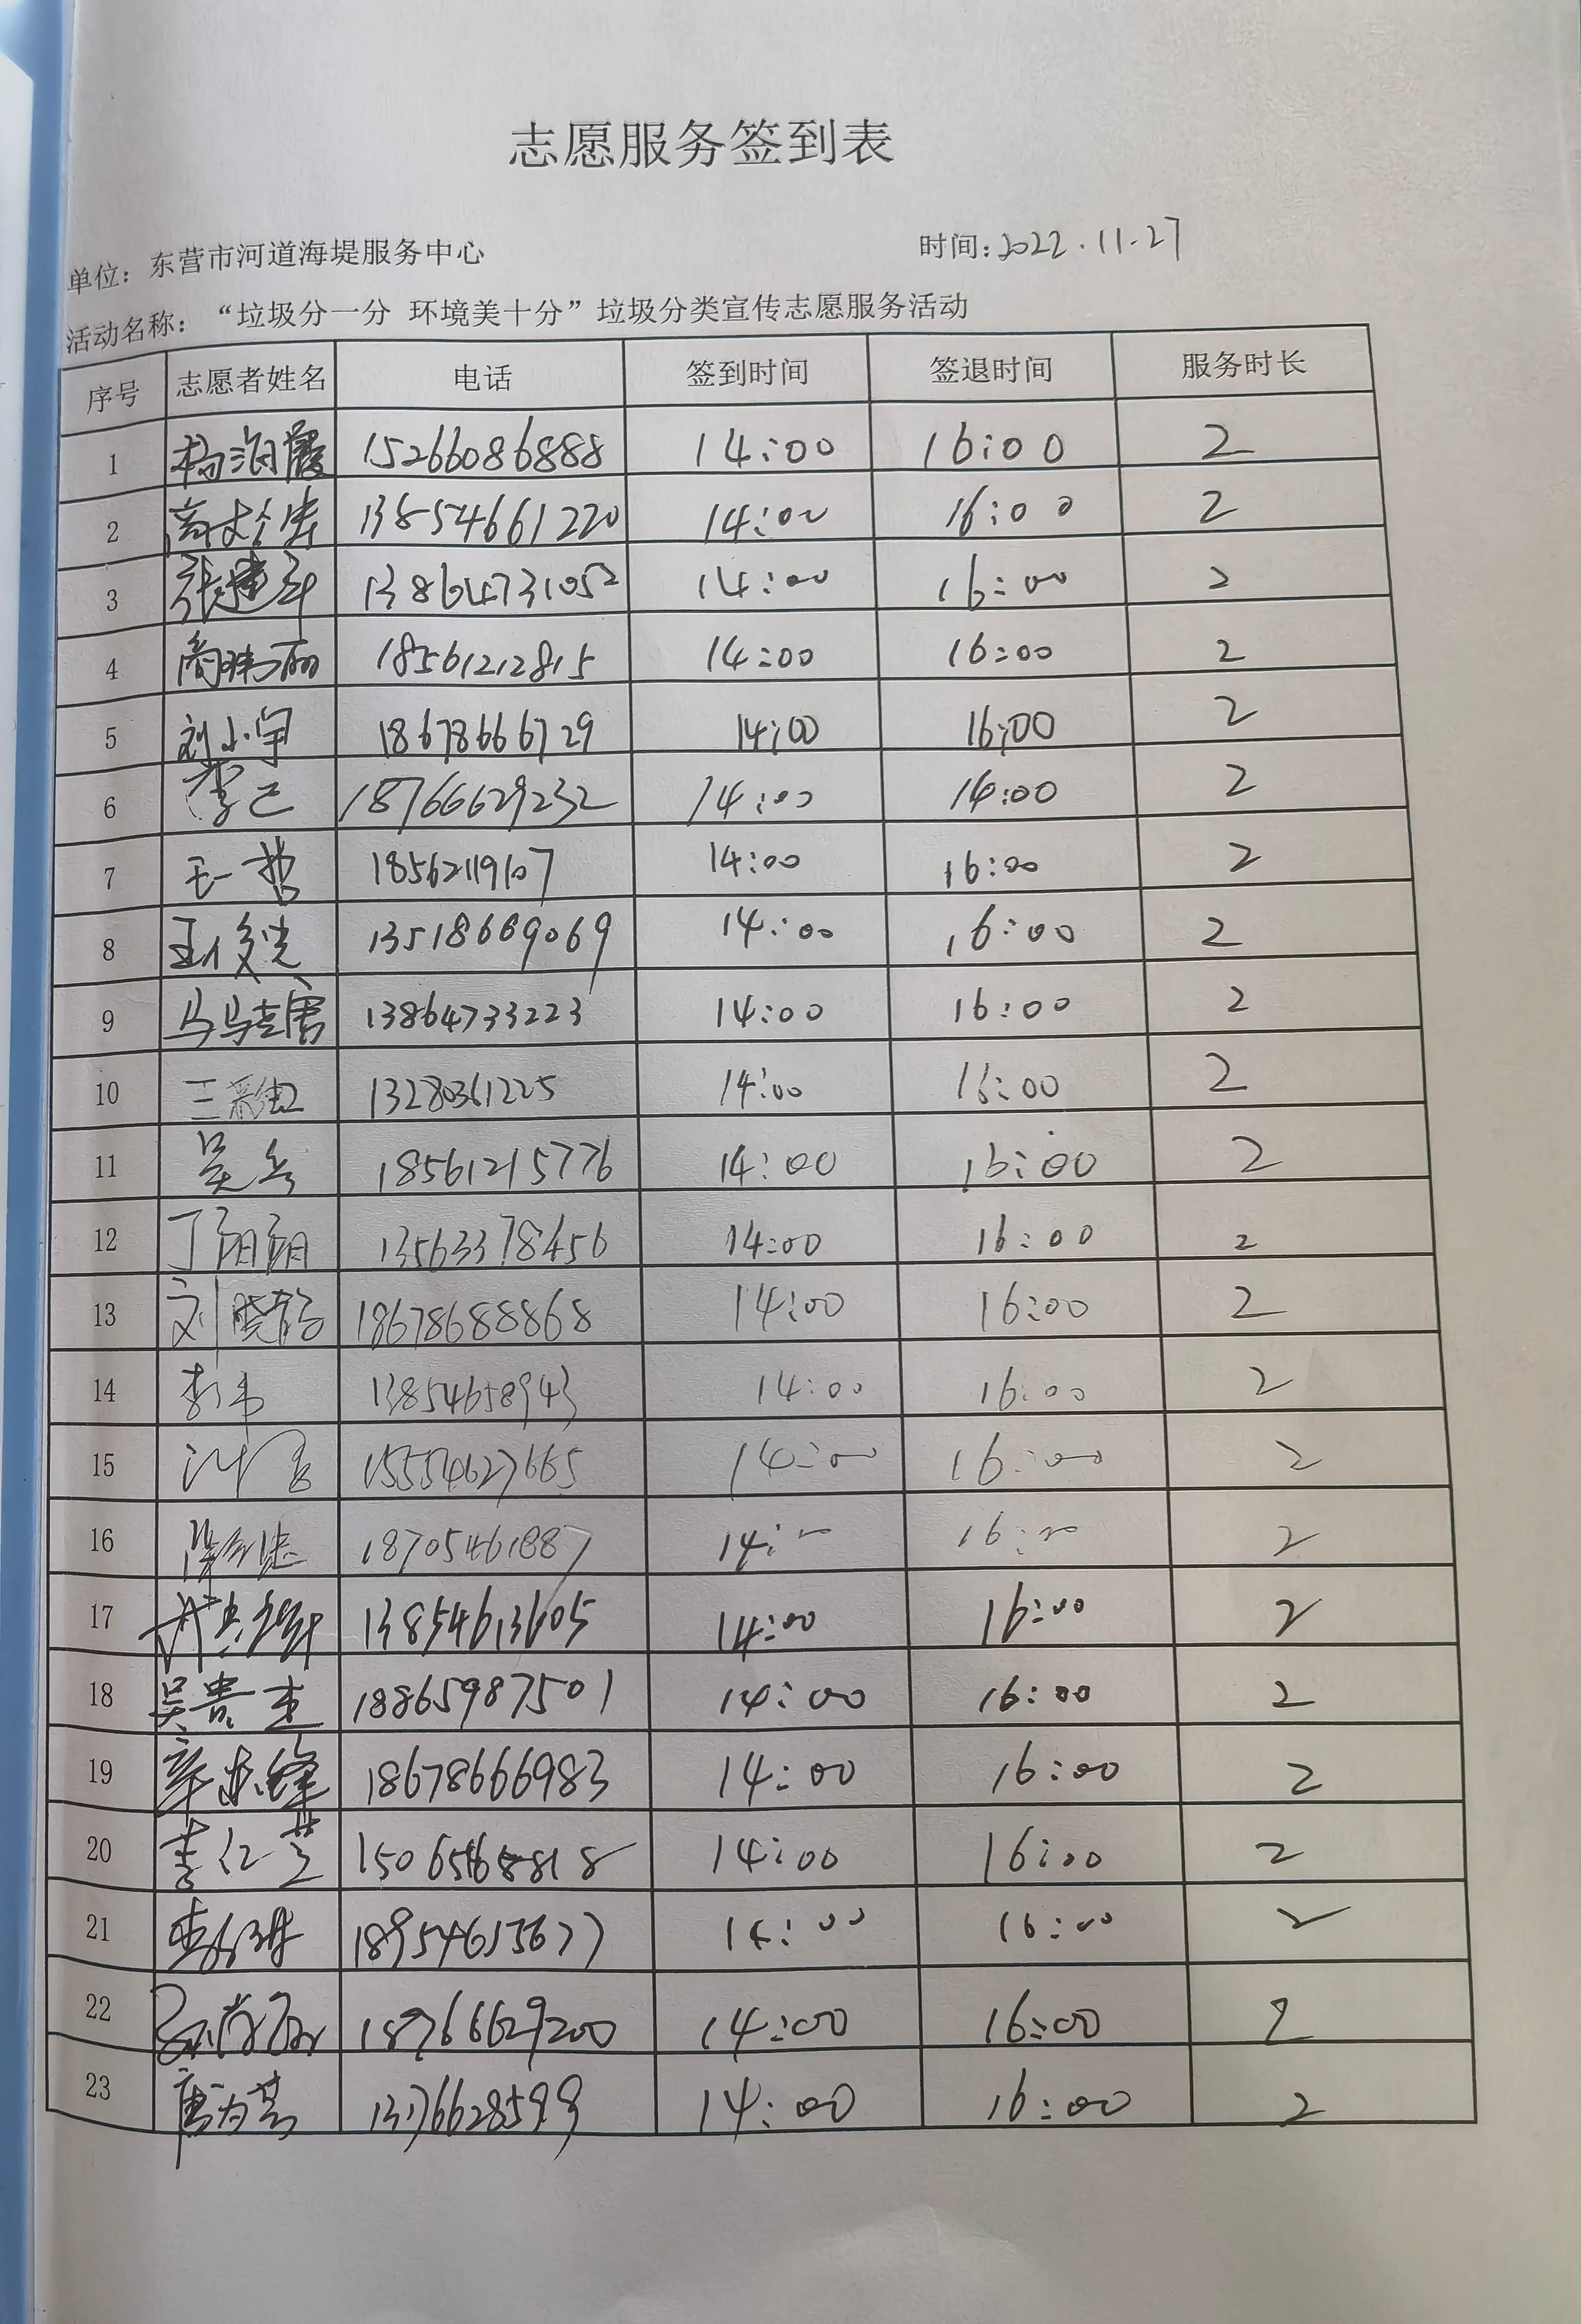 志愿服务签到表
单位：东营市河道海堤服务中心 时间：2022.11.27
活动名称：“垃圾分一分 环境美十分”垃圾分类宣传志愿服务活动
序号 志愿者姓名 电话 签到时间 签退时间 服务时长
1 杨海霞 15266086888 14:00 16:00 2
2 13854661220 14:00 16:00 2
3 张建军 13864731052 14:00 16:00 2
4 18561212815 14:00 16:00 2
5 刘小宇 18678666729 14:00 16:00 2
6 李己 18766629232 14:00 16:00 2
7 王一哲 18562119107 14:00 16:00 2
8 王俊光 13518669069 14:00 16:00 2
9 13864733223 14:00 16:00 2
10 13280361225 14:00 16:00 2
11 吴 18561215776 14:00 16:00 2
12 丁朝朝 13563378456 14:00 16:00 2
13 刘晓 18678688868 14:00 16:00 2
14 李 13854658943 14:00 16:00 2
15 15554627665 14:00 16:00 2
16 18705461887 14:00 16:00 2
17 13854613605 14:00 16:00 2
18 吴贵杰 18865987501 14:00 16:00 2
19 18678666983 14:00 16:00 2
20 李仁芝 14:00 16:00 2
21 18954613677 14:00 16:00 2
22 18766629200 14:00 16:00 2
23 唐为 14:00 16:00 2